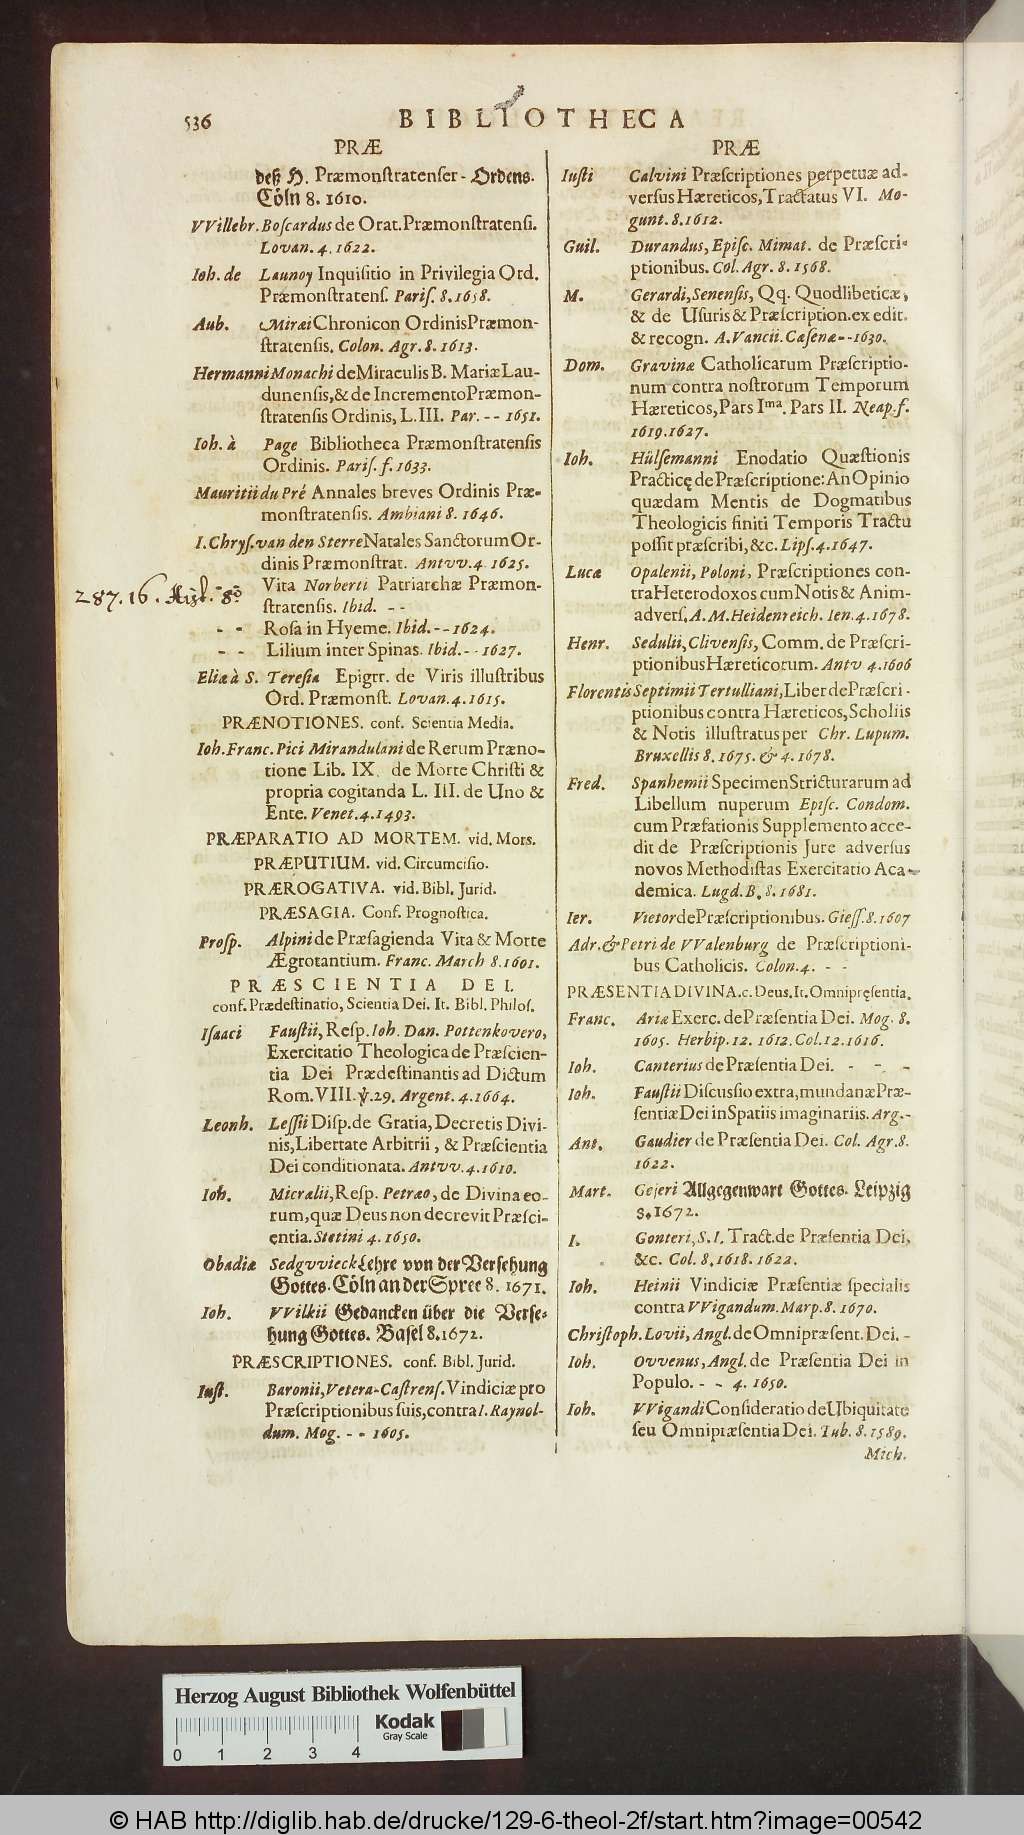 536
BIBLIOTHECA
PRÆ
deß H. Præmonſtratenſer-Ordens.
Cöln 8. 1610.
VVillebr. Boſcardus de Orat. Præmonſtratenſi.
Lovan. 4. 1622.
Ioh. de Launoy Inquiſitio in Privilegia Ord.
Præmonſtratenſ. Pariſ. 8. 1658.
Aub. Miræi Chronicon Ordinis Præmon-
ſtratenſis. Colon. Agr. 8. 1613.
Hermanni Monachi de Miraculis B. Mariæ Lau-
dunenſis, & de Incremento Præmon-
ſtratenſis Ordinis, L. III. Par. -- 1651.
Ioh. à Page Bibliotheca Præmonſtratenſis
Ordinis. Pariſ. f. 1633.
Mauritii du Pré Annales breves Ordinis Præ-
monſtratenſis. Ambiani 8. 1646.
I. Chryſ. van den Sterre Natales Sanctorum Or-
dinis Præmonſtrat. Antvv. 4. 1625.
287.16. Hiſt. 8º
- - Vita Norberti Patriarchæ Præmon-
ſtratenſis. Ibid. - -
- - Roſa in Hyeme. Ibid. -- 1624.
- - Lilium inter Spinas. Ibid. -- 1627.
Eliæ à S. Tereſia Epigrr. de Viris illuſtribus
Ord. Præmonſt. Lovan. 4. 1615.
PRÆNOTIONES. conf. Scientia Media.
Ioh. Franc. Pici Mirandulani de Rerum Præno-
tione Lib. IX. de Morte Chriſti &
propria cogitanda L. III. de Uno &
Ente. Venet. 4. 1493.
PRÆPARATIO AD MORTEM. vid. Mors.
PRÆPUTIUM. vid. Circumciſio.
PRÆROGATIVA. vid. Bibl. Jurid.
PRÆSAGIA. Conf. Prognoſtica.
Proſp. Alpini de Præſagienda Vita & Morte
Ægrotantium. Franc. March 8. 1601.
PRÆSCIENTIA DEI.
conf. Prædeſtinatio, Scientia Dei. It. Bibl. Philoſ.
Iſaaci Fauſtii, Reſp. Ioh. Dan. Pottenkovero,
Exercitatio Theologica de Præſcien-
tia Dei Prædeſtinantis ad Dictum
Rom. VIII. ꝟ. 29. Argent. 4. 1664.
Leonh. Leſſii Diſp. de Gratia, Decretis Divi-
nis, Libertate Arbitrii, & Præſcientia
Dei conditionata. Antvv. 4. 1610.
Ioh. Micrælii, Reſp. Petræo, de Divina eo-
rum, quæ Deus non decrevit Præſci-
entia. Stetini 4. 1650.
Obadiæ Sedgvvieck Lehre von der Verſehung
Gottes. Cöln an der Spree 8. 1671.
Ioh. VVilkii Gedancken über die Verſe-
hung Gottes. Baſel 8. 1672.
PRÆSCRIPTIONES. conf. Bibl. Jurid.
Iuſt. Baronii, Vetera-Caſtrenſ. Vindiciæ pro
Præſcriptionibus ſuis, contra I. Raynol-
dum. Mog. - - 1605.
PRÆ
Iuſti Calvini Præſcriptiones perpetuæ ad-
verſus Hæreticos, Tractatus VI. Mo-
gunt. 8. 1612.
Guil. Durandus, Epiſc. Mimat. de Præſcri-
ptionibus. Col. Agr. 8. 1568.
M. Gerardi, Senenſis, Qq. Quodlibeticæ,
& de Uſuris & Præſcription. ex edit.
& recogn. A. Vancii. Cæſenæ -- 1630.
Dom. Gravinæ Catholicarum Præſcriptio-
num contra noſtrorum Temporum
Hæreticos, Pars Ima. Pars II. Neap. f.
1619. 1627.
Ioh. Hülſemanni Enodatio Quæſtionis
Practicę de Præſcriptione: An Opinio
quædam Mentis de Dogmatibus
Theologicis finiti Temporis Tractu
poſſit præſcribi, &c. Lipſ. 4. 1647.
Lucæ Opalenii, Poloni, Præſcriptiones con-
tra Heterodoxos cum Notis & Anim-
adverſ. A. M. Heidenreich. Ien. 4. 1678.
Henr. Sedulii, Clivenſis, Comm. de Præſcri-
ptionibus Hæreticorum. Antv 4. 1606
Florentis Septimii Tertulliani, Liber de Præſcri-
ptionibus contra Hæreticos, Scholiis
& Notis illuſtratus per Chr. Lupum.
Bruxellis 8. 1675. & 4. 1678.
Fred. Spanhemii Specimen Stricturarum ad
Libellum nuperum Epiſc. Condom.
cum Præfationis Supplemento acce-
dit de Præſcriptionis Jure adverſus
novos Methodiſtas Exercitatio Aca-
demica. Lugd. B. 8. 1681.
Ier. Vietor de Præſcriptionibus. Gieſſ. 8. 1607
Adr. & Petri de VValenburg de Præſcriptioni-
bus Catholicis. Colon. 4. - -
PRÆSENTIA DIVINA. c. Deus. It. Omnipręſentia.
Franc. Ariæ Exerc. de Præſentia Dei. Mog. 8.
1605. Herbip. 12. 1612. Col. 12. 1616.
Ioh. Canterius de Præſentia Dei. - - -
Ioh. Fauſtii Diſcuſſio extra, mundanæ Præ-
ſentiæ Dei in Spatiis imaginariis. Arg. -
Ant. Gaudier de Præſentia Dei. Col. Agr. 8.
1622.
Mart. Gejeri Allgegenwart Gottes. Leipzig
8. 1672.
I. Gonteri, S. I. Tract. de Præſentia Dei,
&c. Col. 8. 1618. 1622.
Ioh. Heinii Vindiciæ Præſentiæ ſpecialis
contra VVigandum. Marp. 8. 1670.
Chriſtoph. Lovii, Angl. de Omnipræſent. Dei. -
Ioh. Ovvenus, Angl. de Præſentia Dei in
Populo. - - 4. 1650.
Ioh. VVigandi Conſideratio de Ubiquitate
ſeu Omnipræſentia Dei. Tub. 8. 1589.
Mich.
Herzog August Bibliothek Wolfenbüttel
Kodak
Gray Scale
0 1 2 3 4
© HAB http://diglib.hab.de/drucke/129-6-theol-2f/start.htm?image=00542